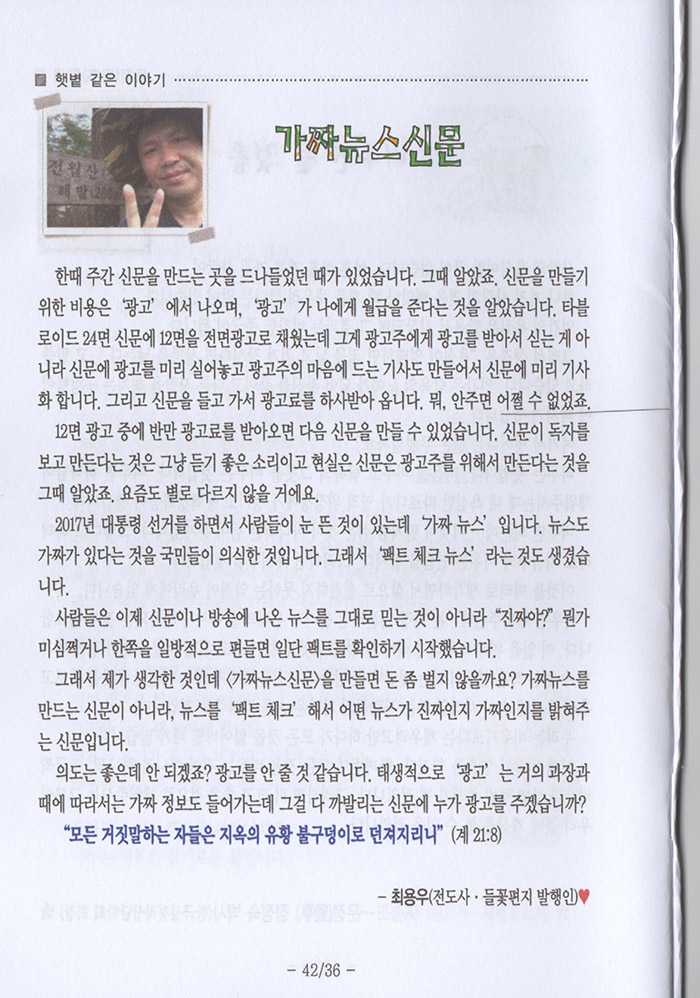 햇볕 같은 이야기
가짜뉴스신문
전월산
해발(260
한때 주간 신문을 만드는 곳을 드나들었던 때가 있었습니다. 그때 알았죠. 신문을 만들기
위한 비용은 ‘광고’ 에서 나오며, ‘광고’ 가 나에게 월급을 준다는 것을 알았습니다. 타블
로이드 24면 신문에 12면을 전면광고로 채웠는데 그게 광고주에게 광고를 받아서 신는 게 아
니라 신문에 광고를 미리 실어놓고 광고주의 마음에 드는 기사도 만들어서 신문에 미리 기사
화 합니다. 그리고 신문을 들고 가서 광고료를 하사받아 옵니다. 뭐, 안주면 어쩔 수 없었죠.
12면 광고 중에 반만 광고료를 받아오면 다음 신문을 만들 수 있었습니다. 신문이 독자를
보고 만든다는 것은 그냥 듣기 좋은 소리이고 현실은 신문은 광고주를 위해서 만든다는 것을
그때 알았죠. 요즘도 별로 다르지 않을 거에요.
2017년 대통령 선거를 하면서 사람들이 눈 뜬 것이 있는데 ‘가짜 뉴스’ 입니다. 뉴스도
가짜가 있다는 것을 국민들이 의식한 것입니다. 그래서 ‘팩트 체크 뉴스’ 라는 것도 생겼습
니다.
사람들은 이제 신문이나 방송에 나온 뉴스를 그대로 믿는 것이 아니라 “진짜야?” 뭔가
미심쩍거나 한쪽을 일방적으로 편들면 일단 팩트를 확인하기 시작했습니다.
그래서 제가 생각한 것인데 〈가짜뉴스신문〉을 만들면 돈 좀 벌지 않을까요? 가짜뉴스를
만드는 신문이 아니라, 뉴스를 ‘팩트 체크’ 해서 어떤 뉴스가 진짜인지 가짜인지를 밝혀주
는 신문입니다.
의도는 좋은데 안 되겠죠? 광고를 안 줄 것 같습니다. 태생적으로 ‘광고’ 는 거의 과장과
때에 따라서는 가짜 정보도 들어가는데 그걸 다 까발리는 신문에 누가 광고를 주겠습니까?
“모든 거짓말하는 자들은 지옥의 유황 불구덩이로 던져지리니” (계 21:8)
- 최용우(전도사 · 들꽃편지 발행인)♥
- 42/36 -